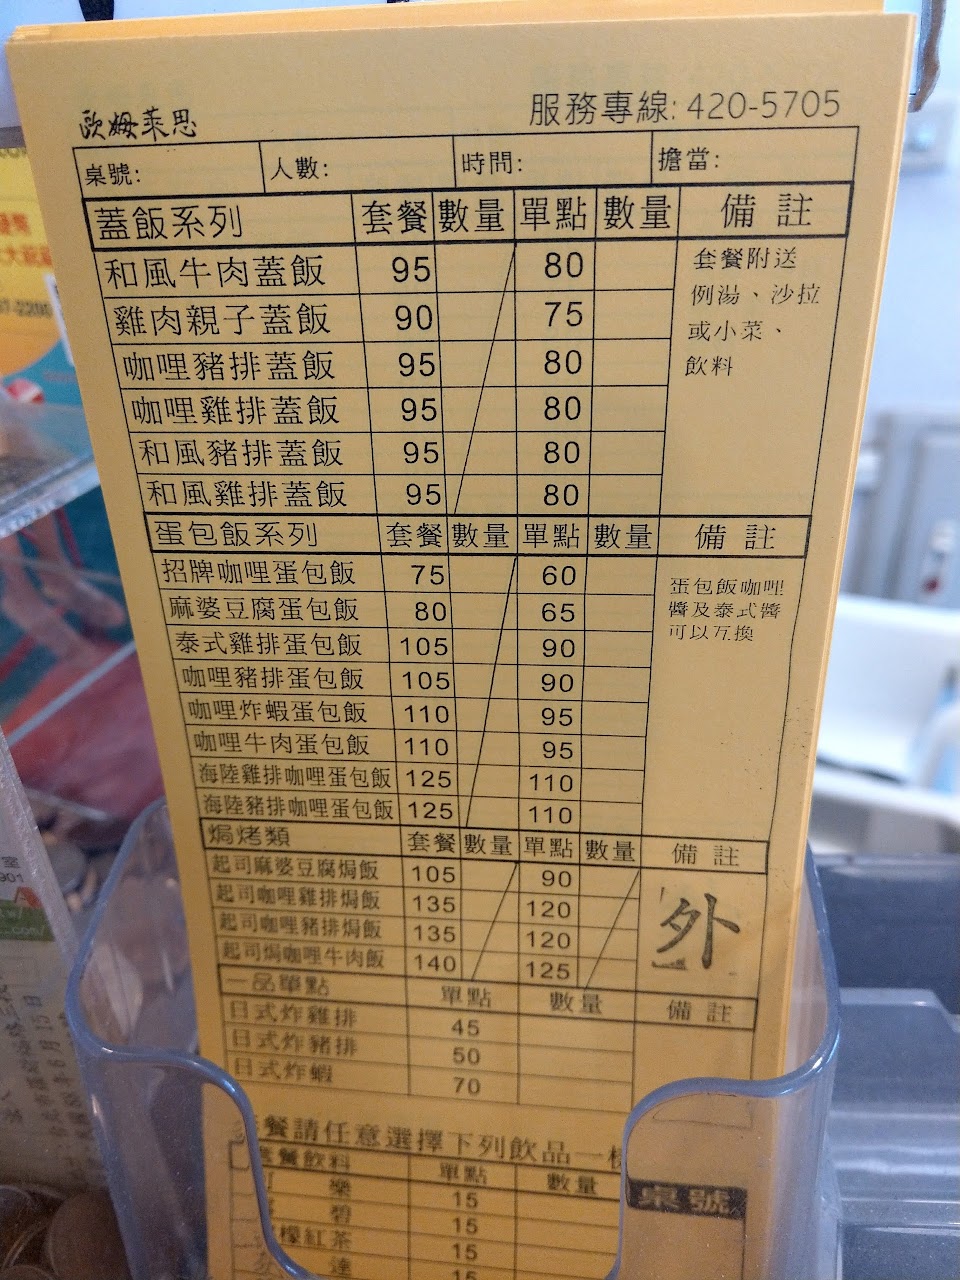 歐姆萊思
服務專線: 420-5705
桌號: 人數: 時間: 擔當:
蓋飯系列 套餐 數量 單點 數量 備註
和風牛肉蓋飯 95 80
雞肉親子蓋飯 90 75
咖哩豬排蓋飯 95 80
咖哩雞排蓋飯 95 80
和風豬排蓋飯 95 80
和風雞排蓋飯 95 80
套餐附送
例湯、沙拉
或小菜、
飲料
蛋包飯系列 套餐 數量 單點 數量 備註
招牌咖哩蛋包飯 75 60
麻婆豆腐蛋包飯 80 65
泰式雞排蛋包飯 105 90
咖哩豬排蛋包飯 105 90
咖哩炸蝦蛋包飯 110 95
咖哩牛肉蛋包飯 110 95
海陸雞排咖哩蛋包飯 125 110
海陸豬排咖哩蛋包飯 125 110
蛋包飯咖哩
醬及泰式醬
可以互換
焗烤類 套餐 數量 單點 數量 備註
起司麻婆豆腐焗飯 105 90
起司咖哩雞排焗飯 135 120
起司咖哩豬排焗飯 135 120
起司焗咖哩牛肉飯 140 125
外
一品單點 單點 數量 備註
日式炸雞排 45
日式炸豬排 50
日式炸蝦 70
套餐請任意選擇下列飲品一
套餐飲料 單點 數量
樂 15
碧 15
檬紅茶 15
達 15
桌號